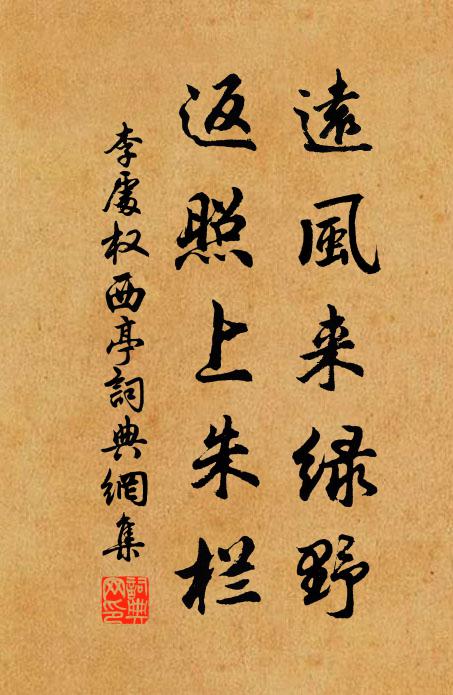 遠風来緑野
返照上朱栏
李處权西亭詞典網集
詞典网印